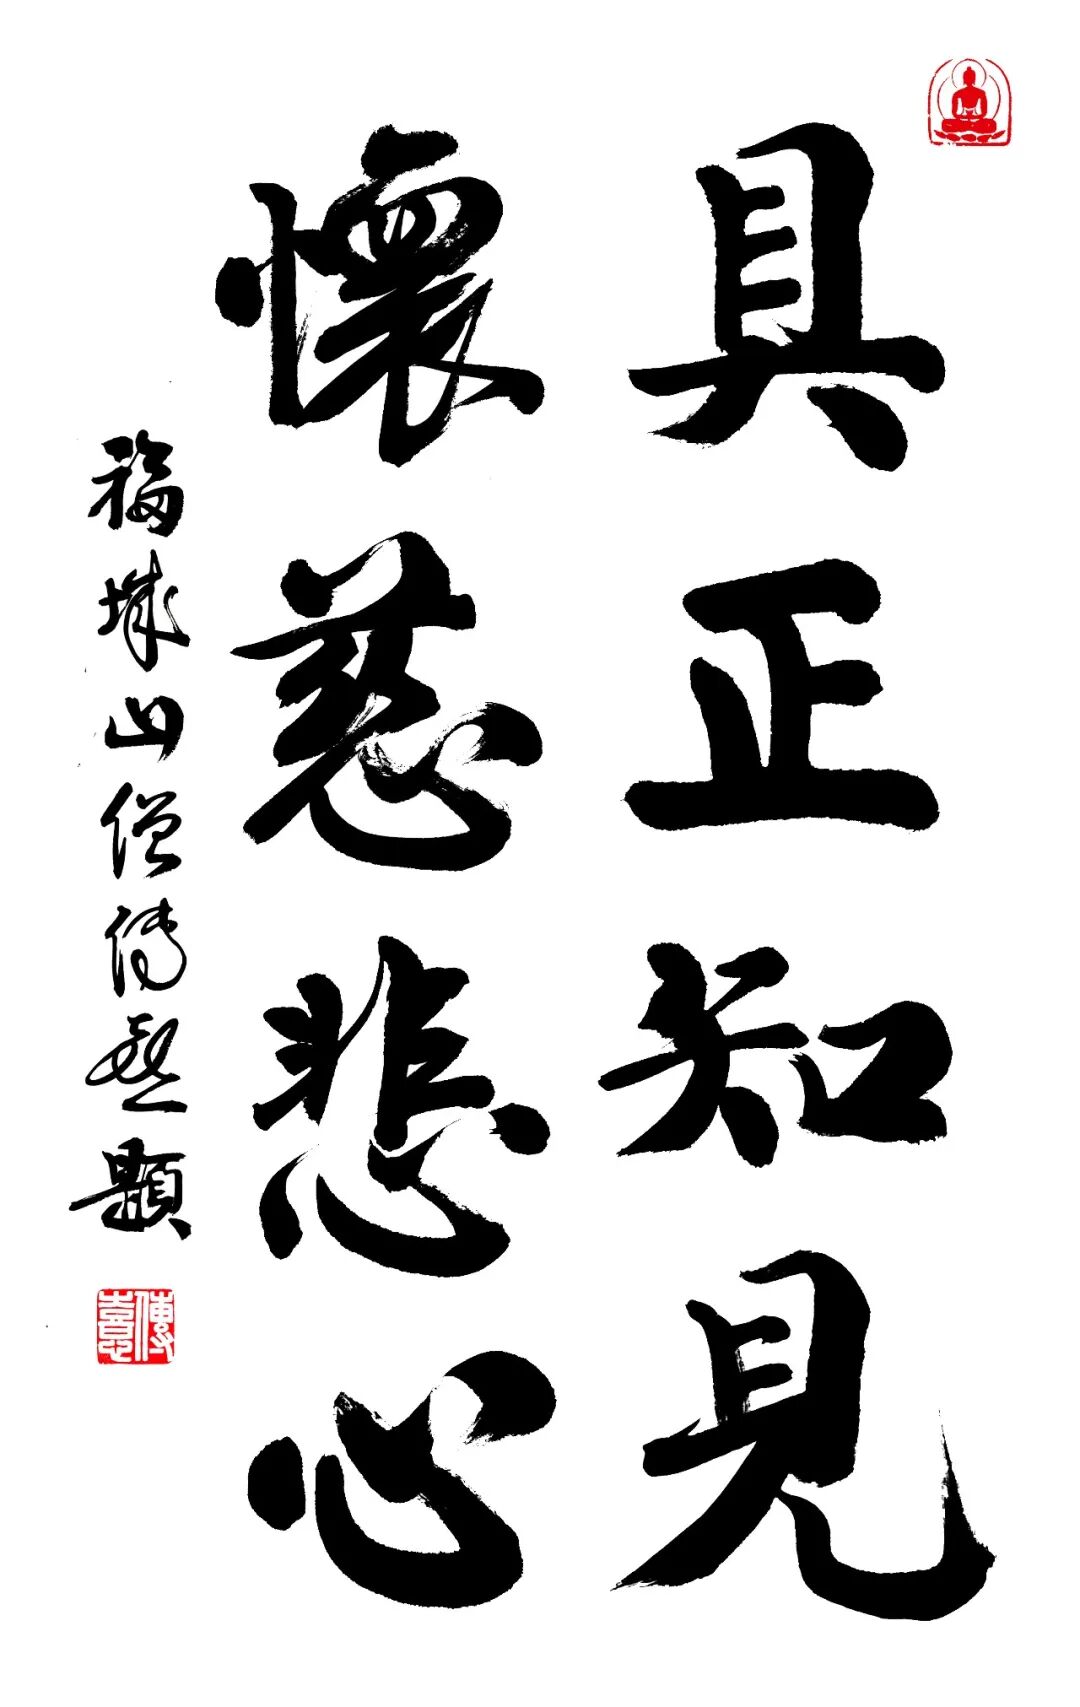 具正知見
懷慈悲心
福城山僧傳憙題
傳憙